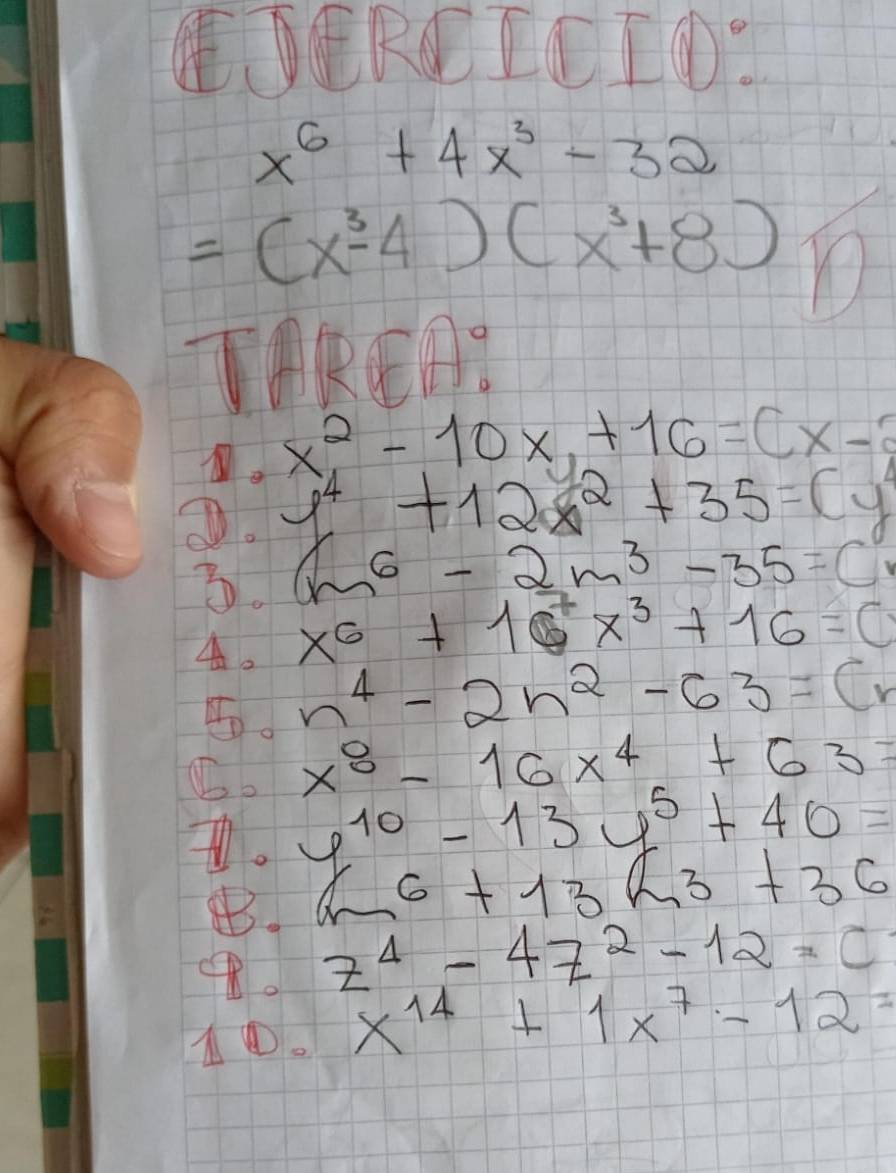 EJERCICIO:
x⁶ + 4x³ - 32
= (x³-4)(x³+8)
TAREA:
1. x² - 10x + 16 = (x -
2. y⁴ + 12y² + 35 = (y
3. m⁶ - 2m³ - 35 = (
4. x⁶ + 17x³ + 16 = (
5. n⁴ - 2n² - 63 = (n
6. x⁸ - 16x⁴ + 63 =
7. y¹⁰ - 13y⁵ + 40 =
8. m⁶ + 13m³ + 36
9. z⁴ - 4z² - 12 = (
10. x¹⁴ + 1x⁷ - 12 =